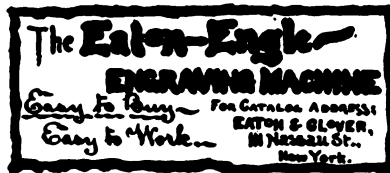 The Eaton-Engle
ENGRAVING MACHINE
Easy to Buy
Easy to Work
FOR CATALOG ADDRESS:
EATON & GLOVER,
111 Nassau St.,
New York.